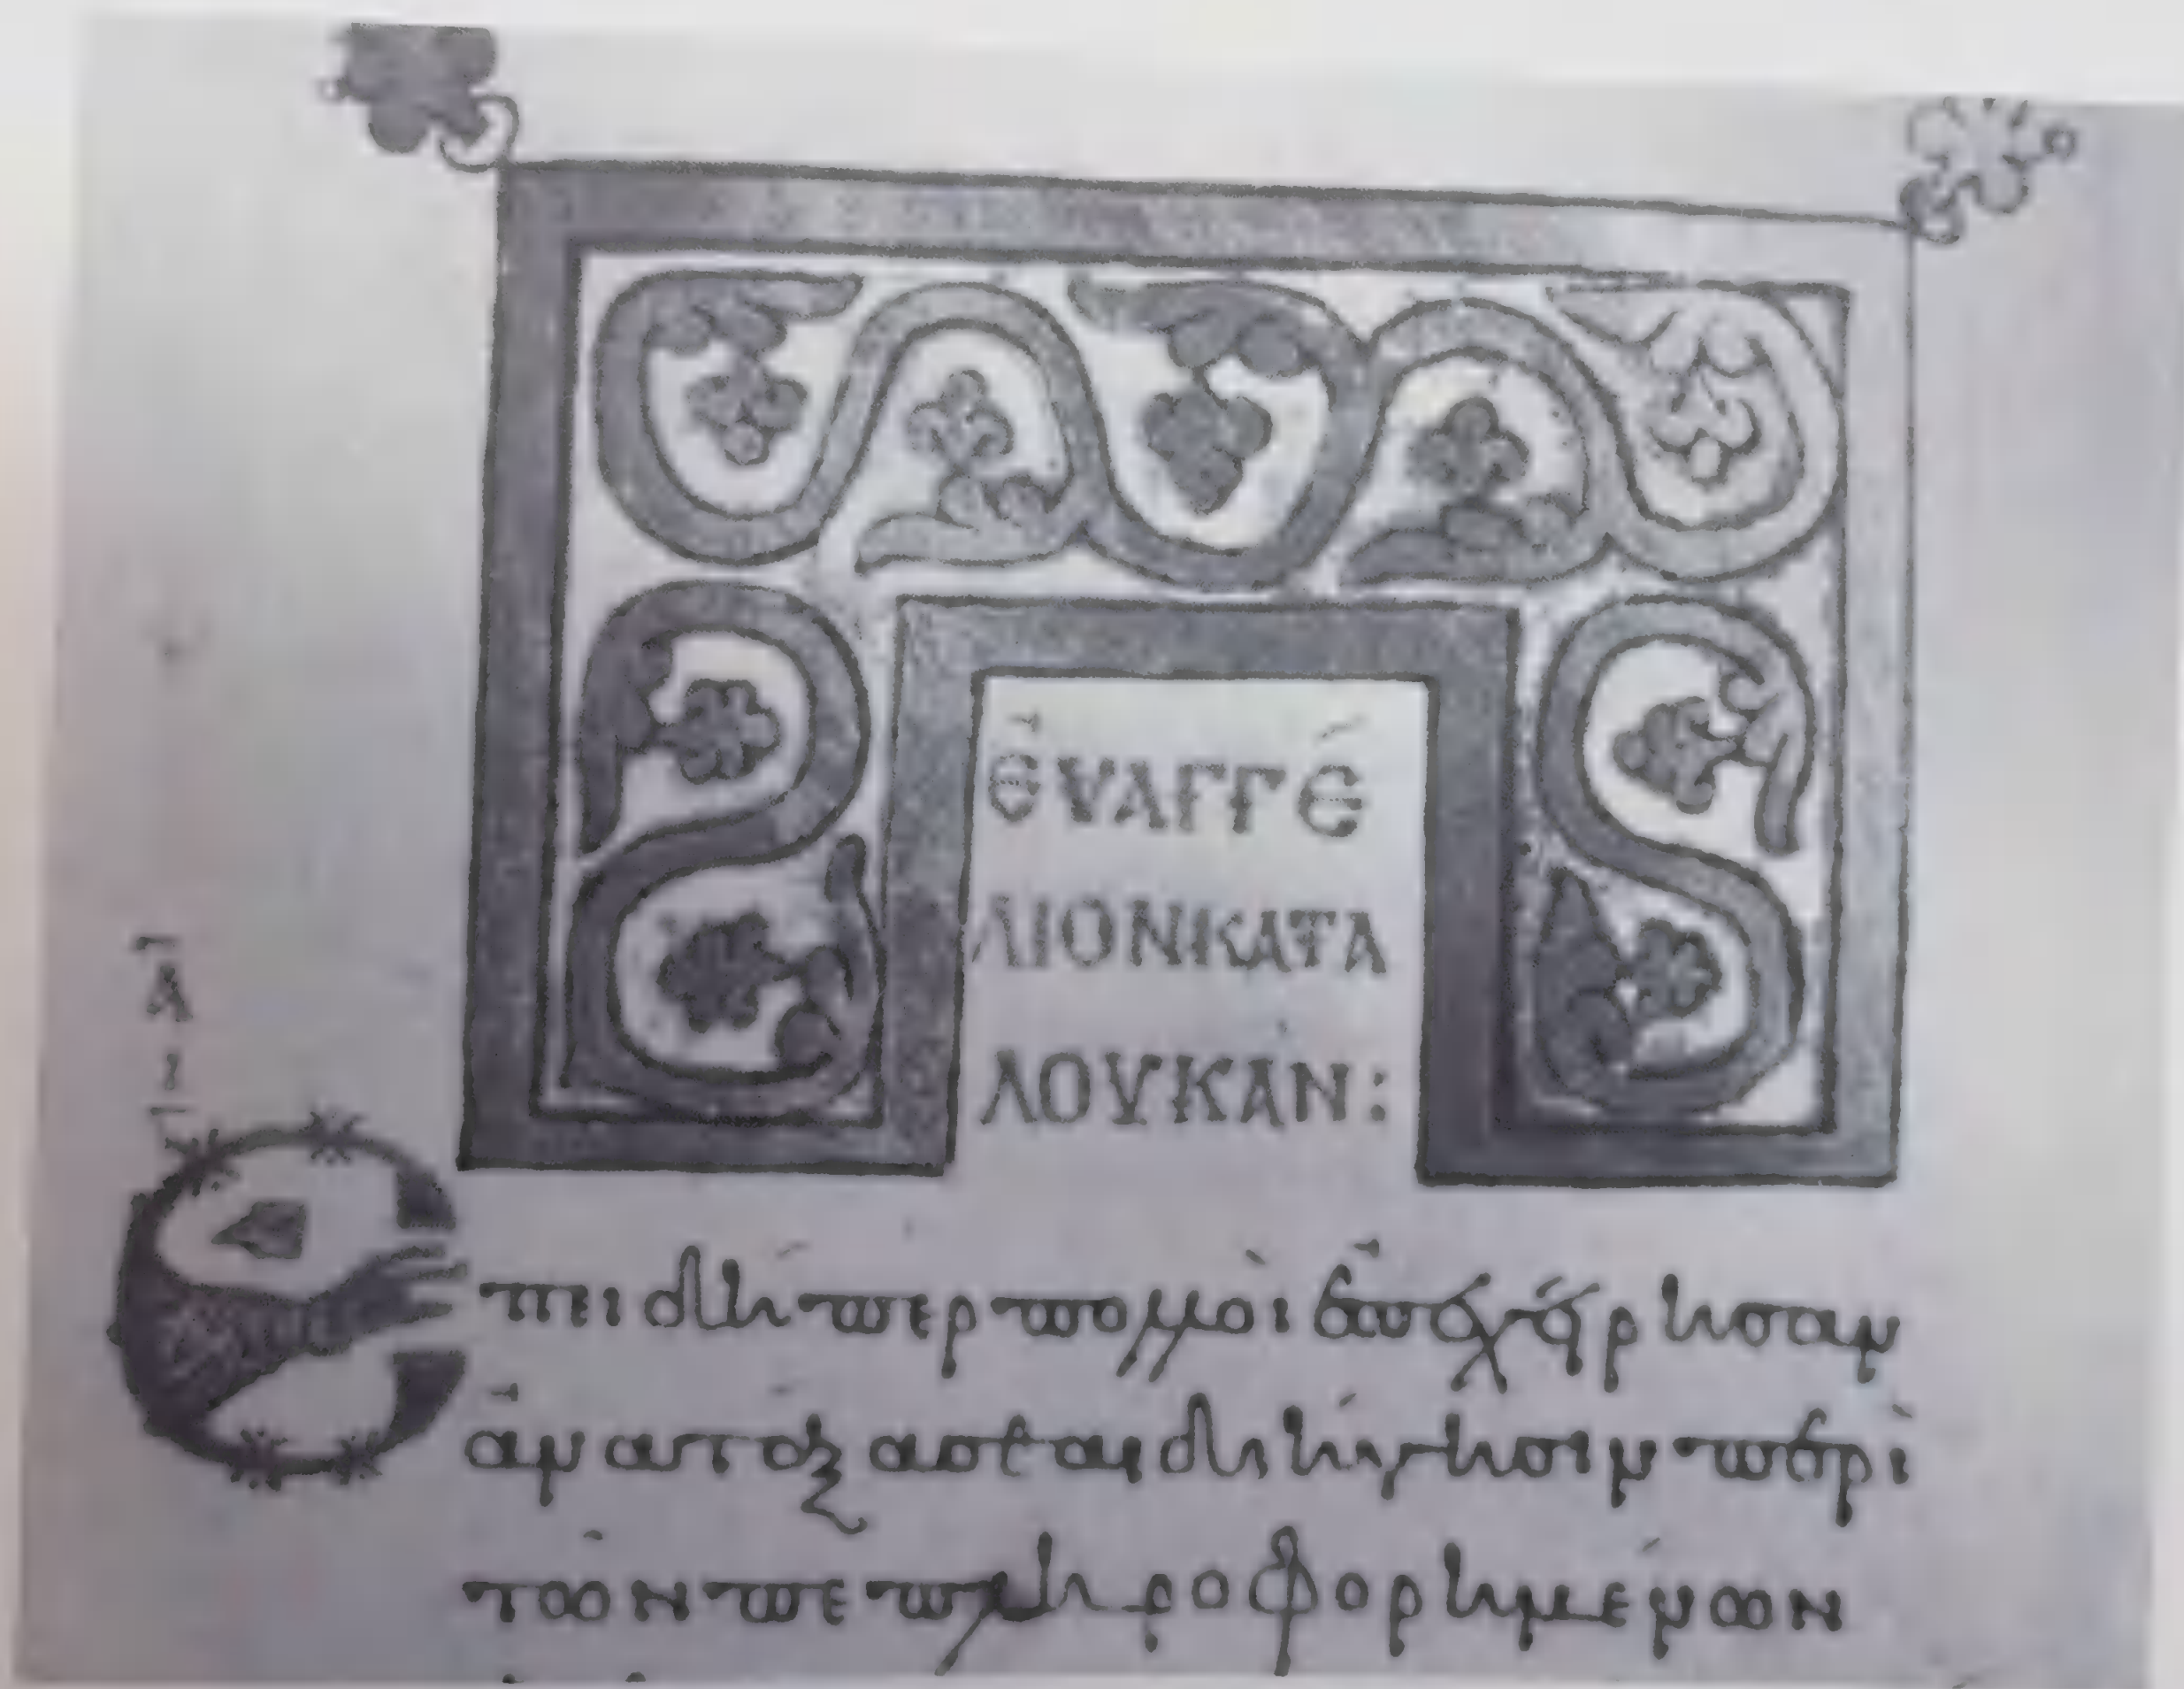 ΕΥΑΓΓΕ
ΛΙΟΝ ΚΑΤΑ
ΛΟΥΚΑΝ:
Ἐπειδήπερ πολλοὶ ἐπεχείρησαν
ἀνατάξασθαι διήγησιν περὶ
τῶν πεπληροφορημένων